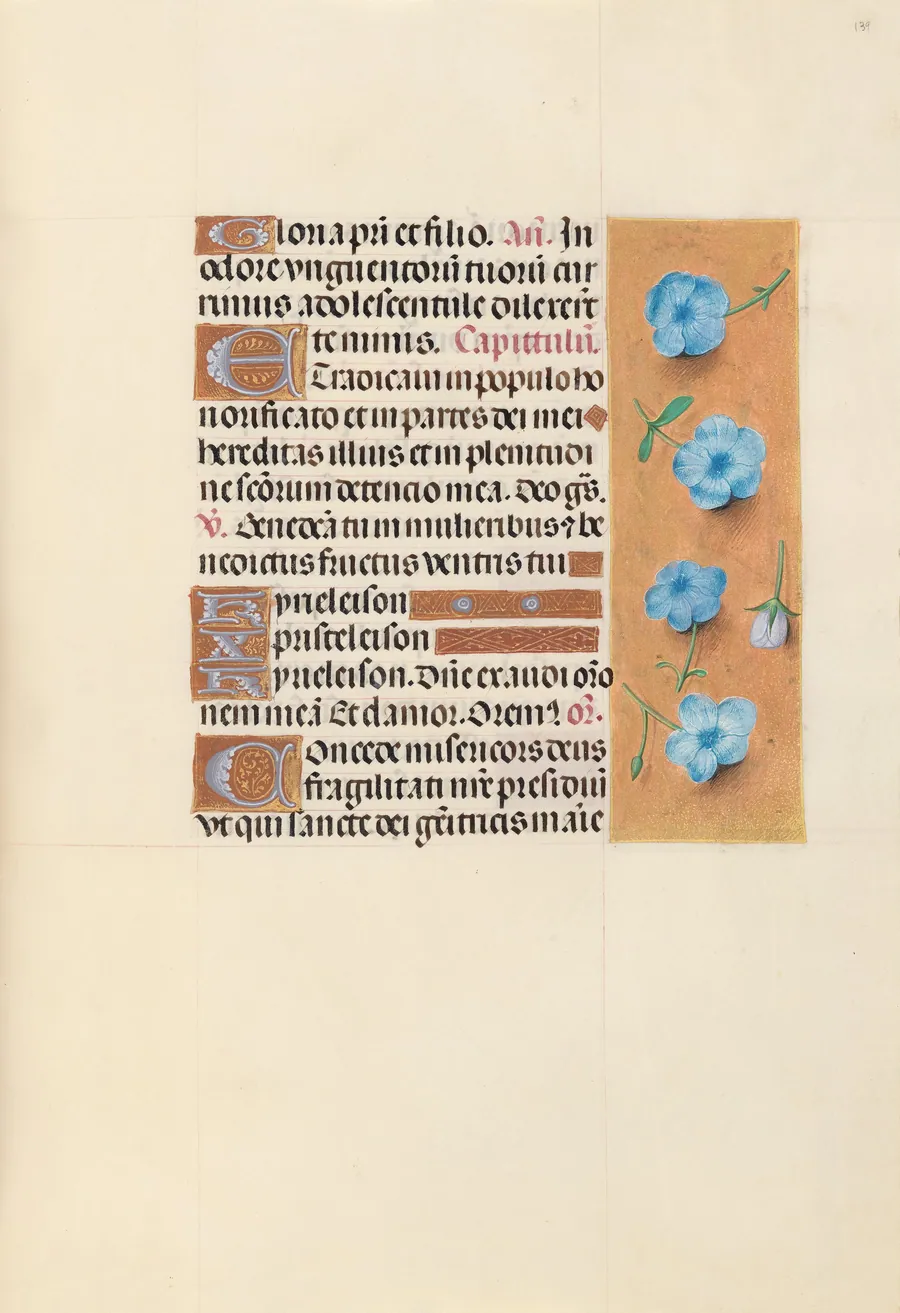 139
Gloria pr̄i et filio. An̄. In
odore vnguentorū tuorū cur
rimus adolescentule dilexerūt
te nimis. Capittulū.
Et radicaui in populo ho
norificato et in partes dei mei
hereditas illius et in plenitudi
ne sc̄orum detencio mea. Deo gr̄s.
V̄. Benedcā tu in mulieribus ⁊ be
nedictus fructus ventris tui
Kyrieleison
Xpristeleison
Kyrieleison. Dn̄e exaudi or̄o
nem meā Et clamor. Orem⁹. or̄.
Concede misericors deus
fragilitati nr̄e presidiū
vt qui sancte dei gēitricis in aīe